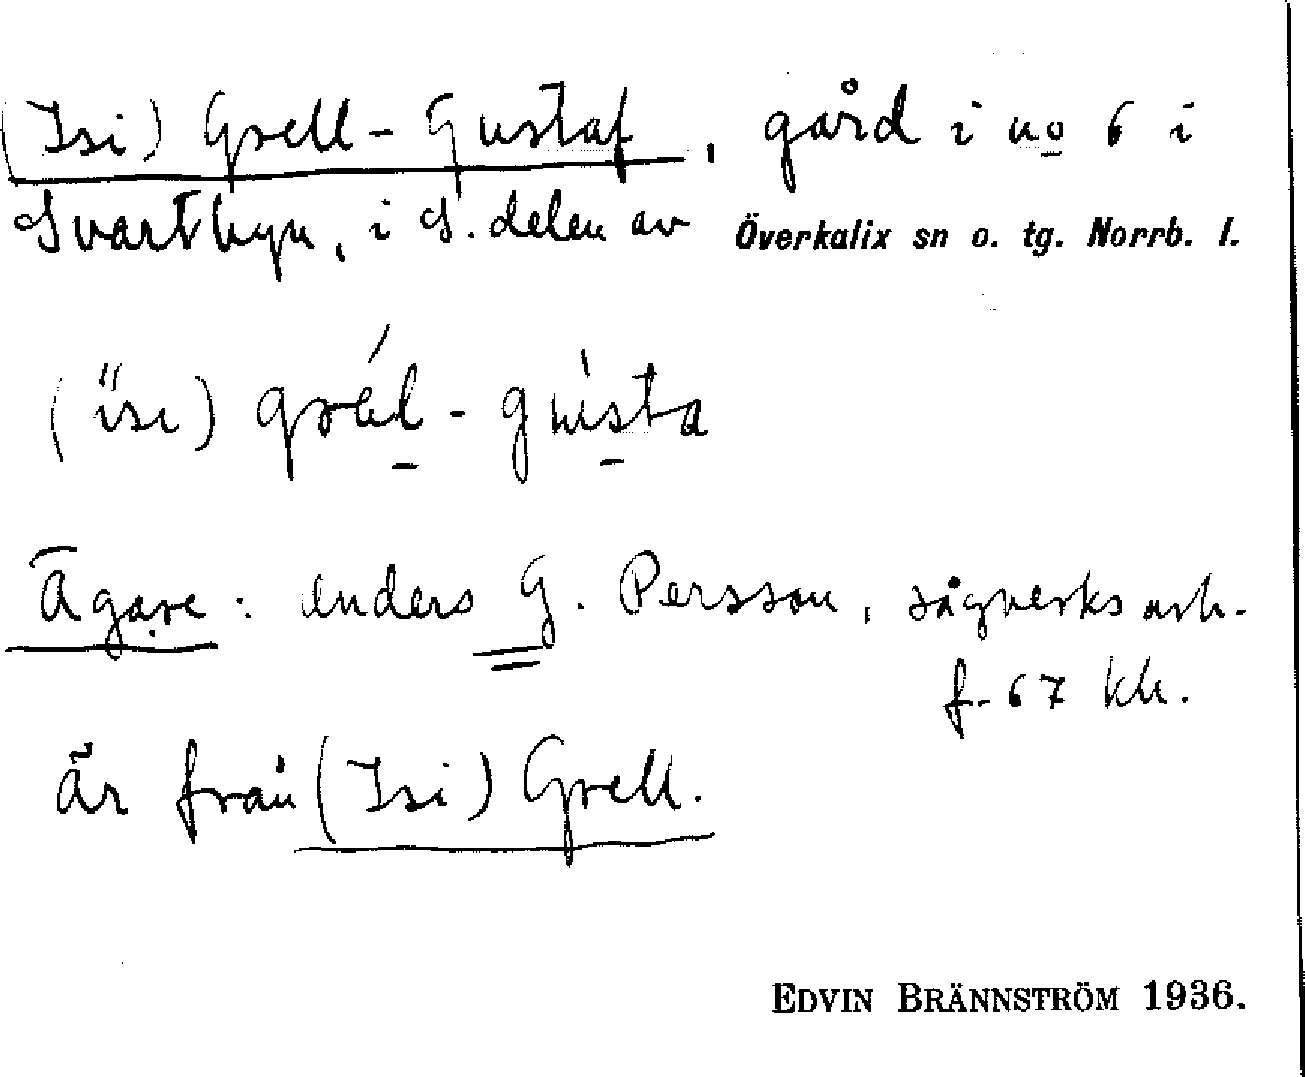 (Isi) Grell-Gustaf, gård i no 6 i
Svartbyn, i S. delen av Överkalix sn o. tg. Norrb. l.
Ägare: Anders G. Persson, sågverksarb.
f. 67 kh.
Är från (Isi) Grell.
EDVIN BRÄNNSTRÖM 1936.